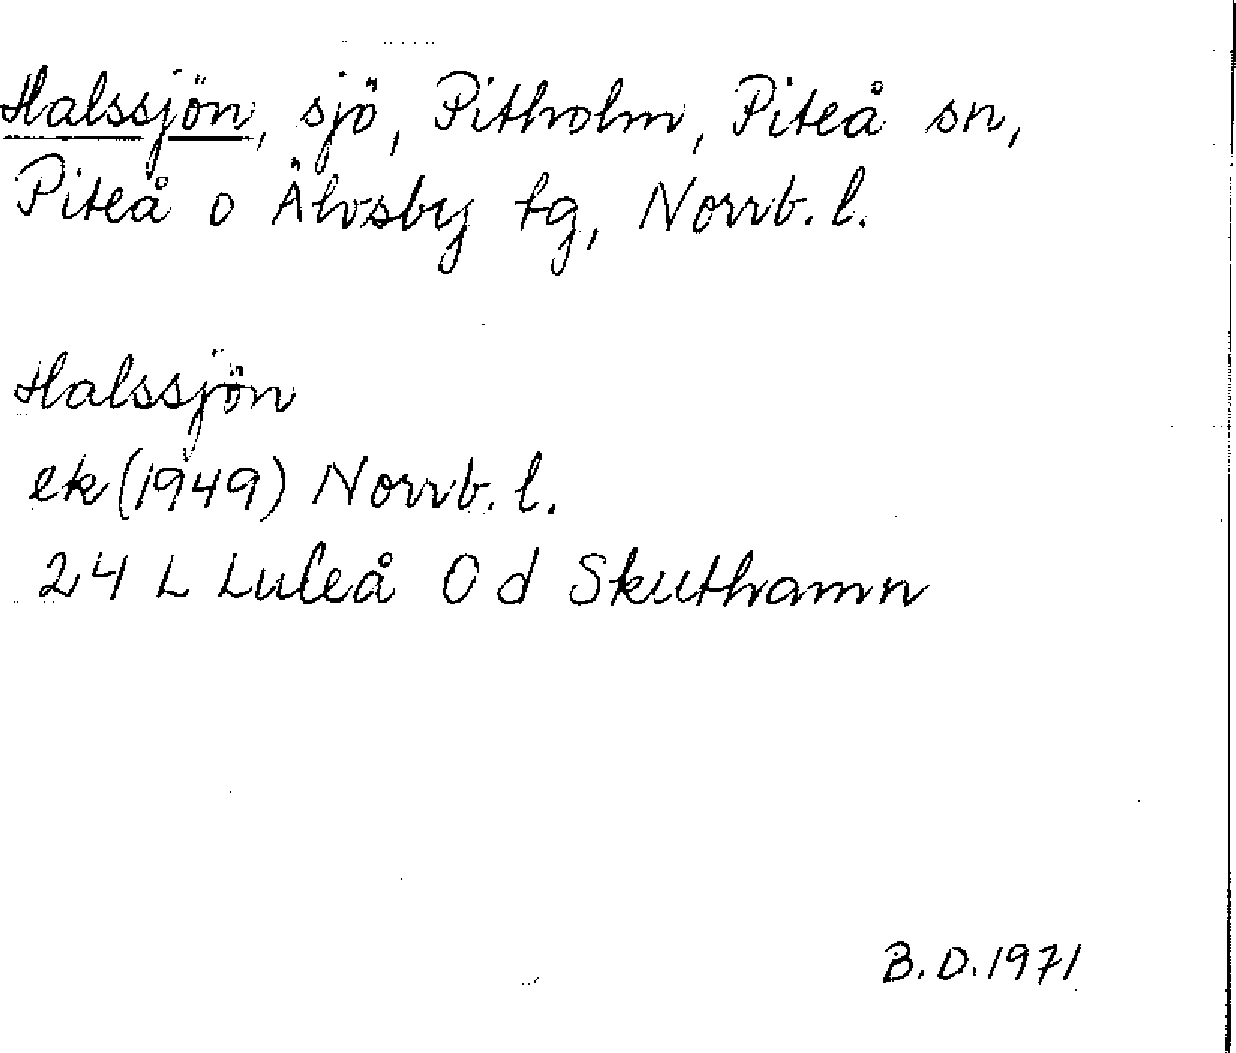 Halssjön, sjö, Pitholm, Piteå sn,
Piteå o Älvsby tg, Norrb. l.
Halssjön
ek (1949) Norrb. l.
24 L Luleå O d Skuthamn
B. D. 1971